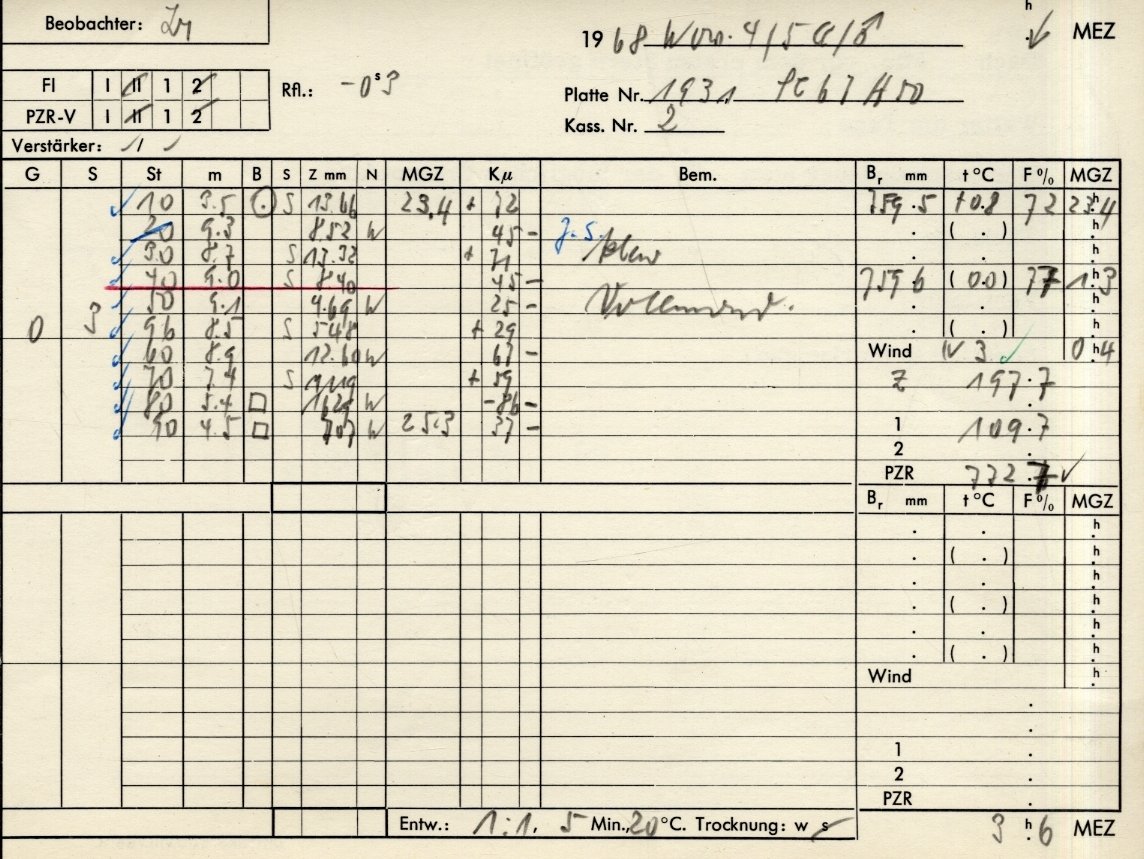 Beobachter:
19 68 4/5
h MEZ
FI I II 1 2
PZR-V I II 1 2
Rfl.: -0ˢ3
Platte Nr. 1931
Kass. Nr. 2
Verstärker:
G S St m B S Z mm N MGZ Kμ Bem. Bᵣ mm t °C F % MGZ
10 3.5 S 13.66 23.4 + 72 759.5 +0.8 72 23ʰ4
20 9.3 8.52 W 45 - ( . ) h
30 8.7 S 13.32 + 71 h
40 9.0 S 8.40 45 - 759.6 (0.0) 77 1ʰ3
50 9.1 4.69 W 25 - Vollmond. h
0 3 96 8.5 S 5.48 + 29 ( . ) h
60 8.9 12.60 W 67 - Wind W 3 0ʰ4
70 7.4 S + 59 Z 197.7
80 5.4 □ 16.29 W -86 -
90 4.5 □ 7.07 W 25.3 37 - 1 109.7
2
PZR 772.7
Bᵣ mm t °C F % MGZ
. . h
. ( . ) h
. . h
. ( . ) h
. . h
. ( . ) h
Wind h
1 .
2 .
PZR .
Entw.: 1:1, 5 Min., 20 °C. Trocknung: w s
3 ʰ 6 MEZ